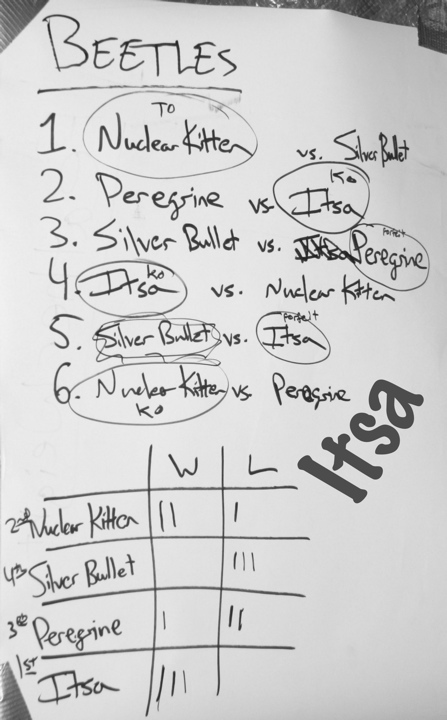 BEETLES
TO
1. Nuclear Kitten vs. Silver Bullet
KO
2. Peregrine vs. Itsa
forfeit
3. Silver Bullet vs. Peregrine
KO
4. Itsa vs. Nuclear Kitten
forfeit
5. Silver Bullet vs. Itsa
6. Nuclear Kitten vs Peregrine
KO
Itsa
W L
2nd Nuclear Kitten II I
4th Silver Bullet III
3rd Peregrine I II
1st Itsa III